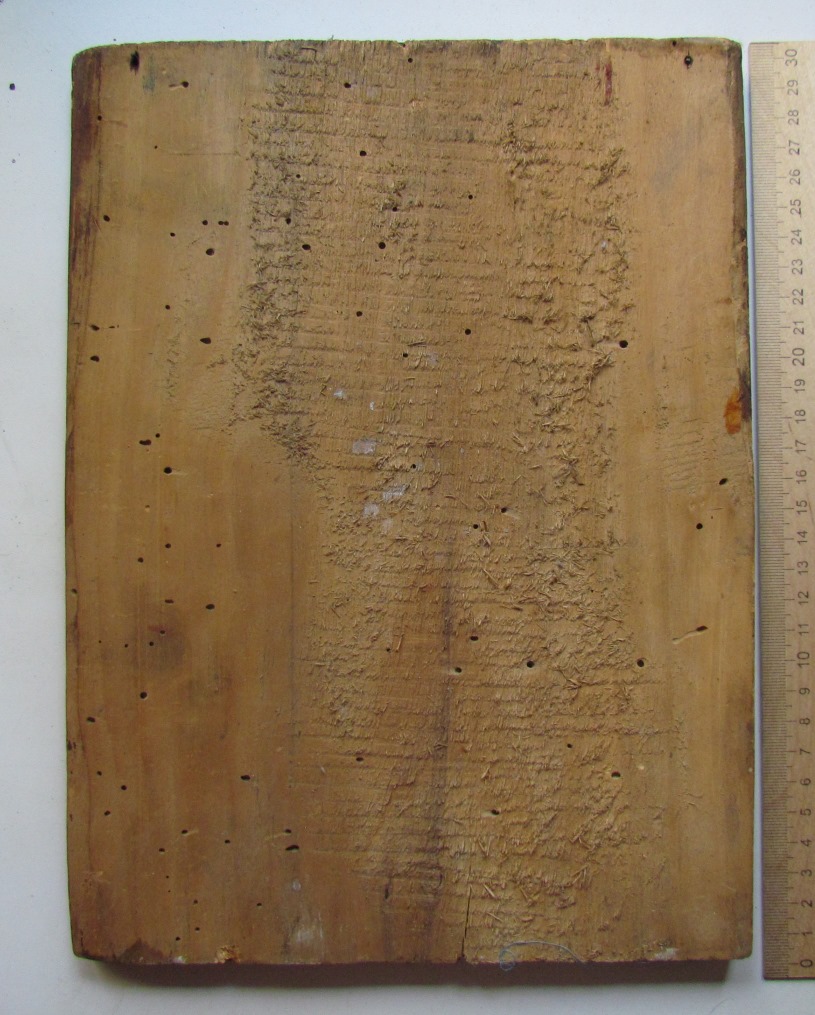 30
29
28
27
26
25
24
23
22
21
20
19
18
17
16
15
14
13
12
11
10
9
8
7
6
5
4
3
2
1
0